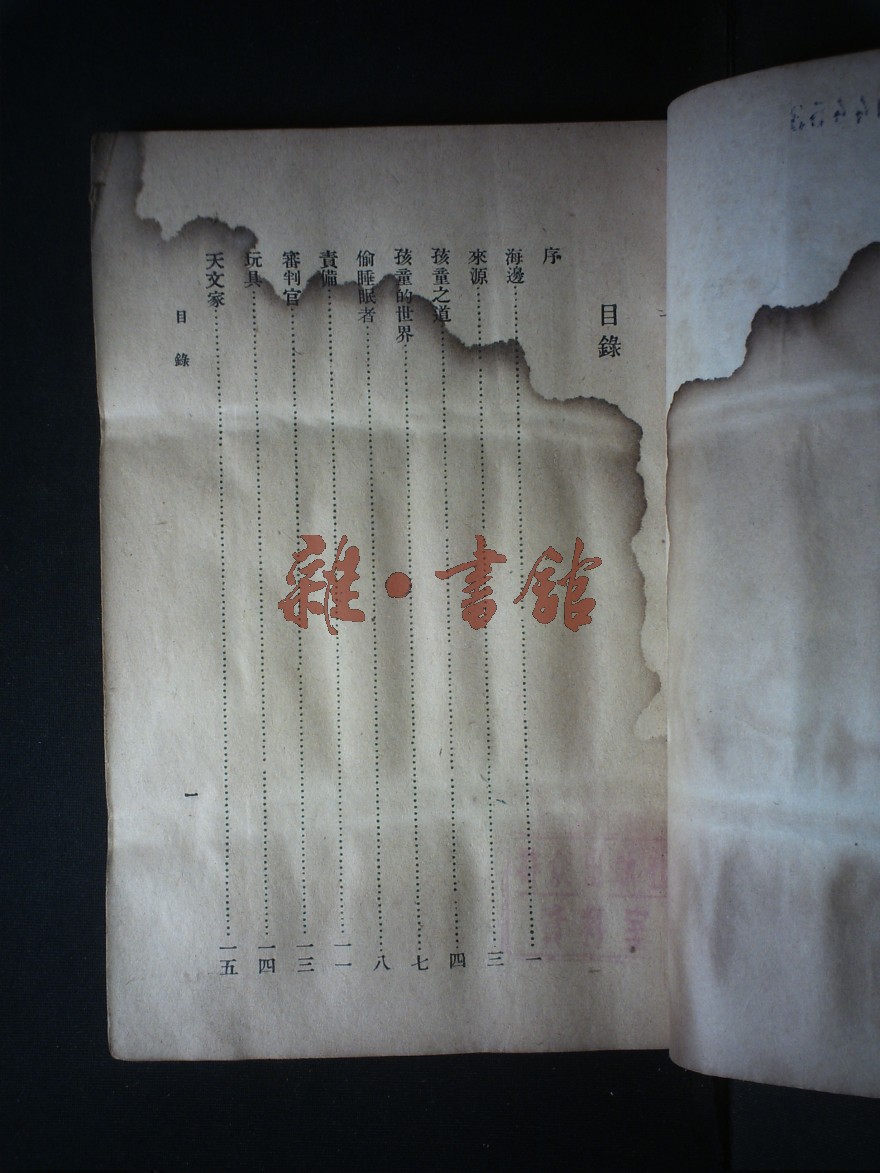 目錄
序
海邊……一
來源……三
孩童之道……四
孩童的世界……七
偷睡眠者……八
責備……一一
審判官……一三
玩具……一四
天文家……一五
目錄
一
雜·書館